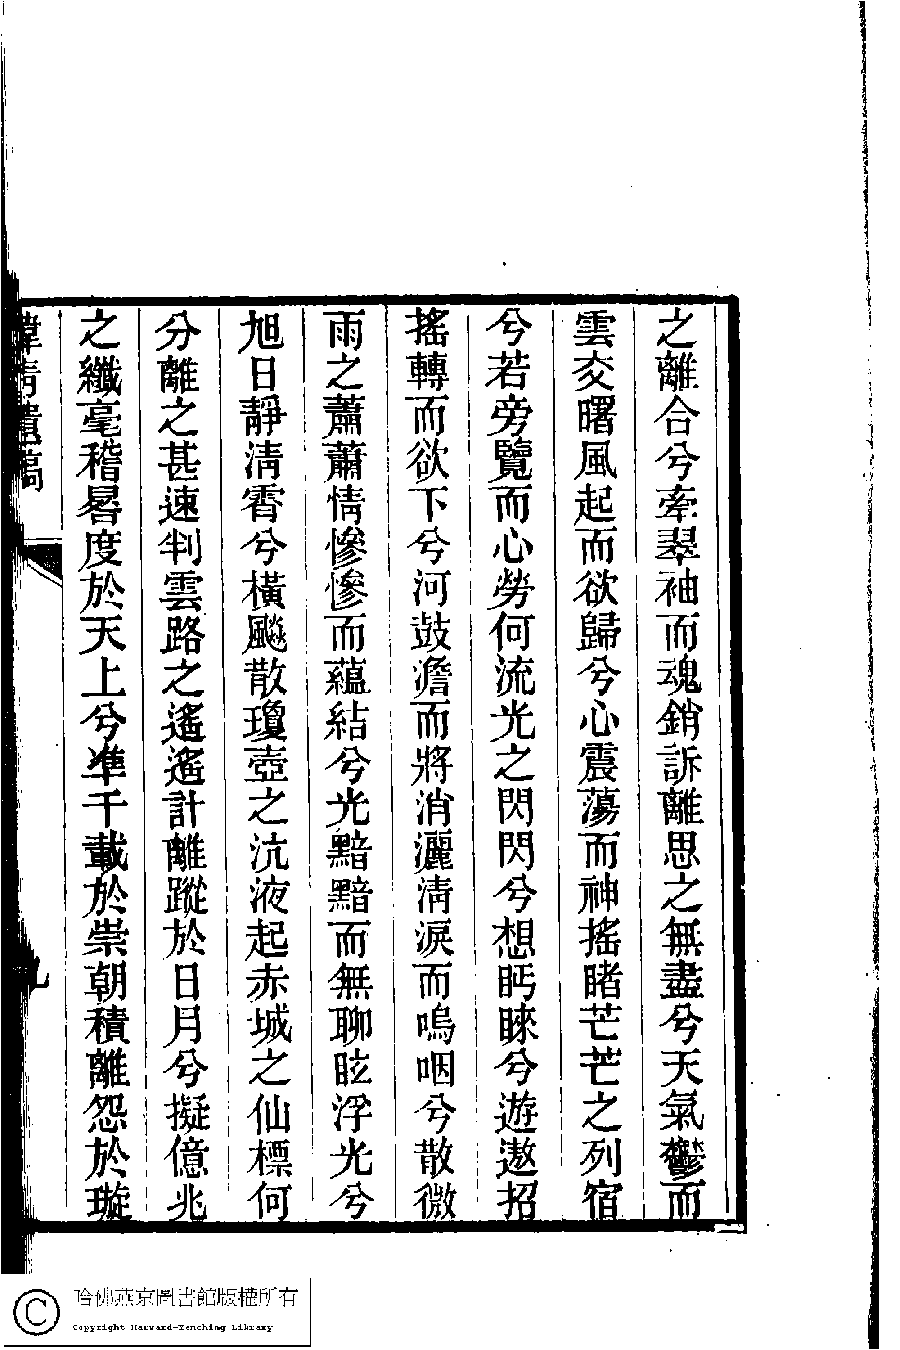 之離合兮牽翠袖而魂銷訴離思之無盡兮天氣鬱而
雲交曙風起而欲歸兮心震蕩而神搖睹芒芒之列宿
兮若旁覽而心勞何流光之閃閃兮想眄睞兮遊遨招
搖轉而欲下兮河鼓澹而將消灑淸淚而嗚咽兮散微
雨之蕭蕭情慘慘而蘊結兮光黯黯而無聊眩浮光兮
旭日靜淸霄兮橫飈散瓊壺之沆液起赤城之仙標何
分離之甚速判雲路之遙遙計離蹤於日月兮擬億兆
之纖毫稽晷度於天上兮準千載於崇朝積離怨於璇
韓淸遺稿
九
哈佛燕京圖書館版權所有
Copyright Harvard-Yenching Library